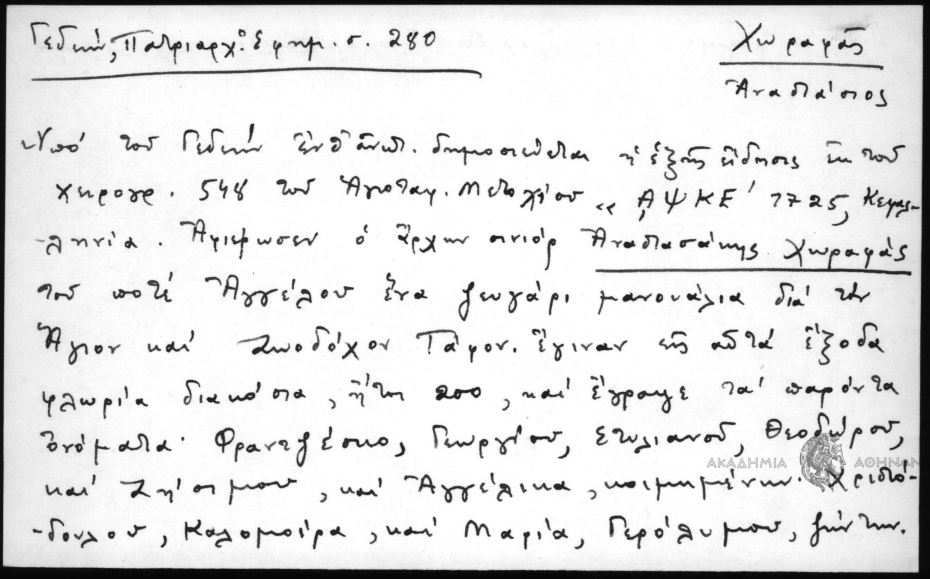 Γεδεών, Πατριαρχ. Εφημ. σ. 280
Χωραφᾶς
Ἀναστάσιος
Ὑπό τοῦ Γεδεών ἔνθ' ἀνωτ. δημοσιεύεται ἡ ἑξῆς εἴδησις ἐκ τοῦ
χειρογρ. 548 τοῦ Ἁγιοταφ. Μετοχίου "ΑΨΚΕ' 1725, Κεφαλ-
-ληνία. Ἀφιέρωσεν ὁ ἄρχων σινιόρ Ἀναστασάκης Χωραφᾶς
τοῦ ποτέ Ἀγγέλου ἕνα ζευγάρι μανουάλια διά τόν
Ἅγιον καί Ζωοδόχον Τάφον. Ἔγιναν εἰς αὐτά ἔξοδα
φλωρία διακόσια, ἤτοι 200, καί ἔγραψε τά παρόντα
ὀνόματα· Φραντζέσκο, Γεωργίου, Στυλιανοῦ, Θεοδώρου,
καί Ζησίμου, καί Ἀγγέλικα, κοιμημένων. Χριστο-
-δούλου, Καλομοίρα, καί Μαρία, Γερόλυμου, ζώντων.
ΑΚΑΔΗΜΙΑ ΑΘΗΝΩΝ